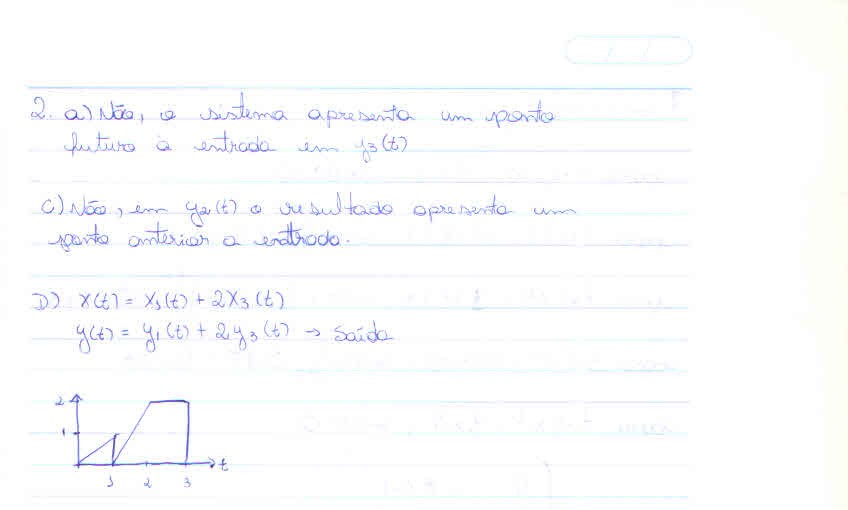 2. a) Não, o sistema apresenta um ponto
futuro à entrada em y3(t)
C) Não, em y2(t) o resultado apresenta um
ponto anterior a entrada.
D) x(t) = x1(t) + 2x3(t)
y(t) = y1(t) + 2y3(t) → Saída
2
1
t
1 2 3